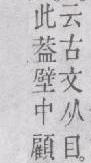 云古文从目。
此葢壁中顧